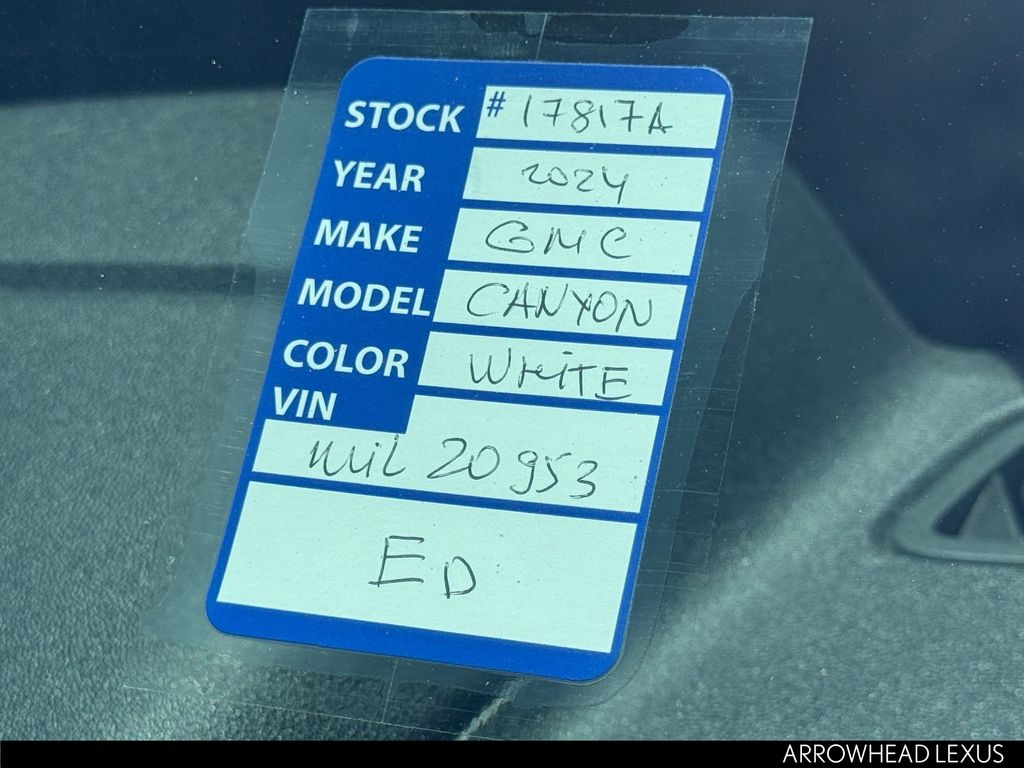 STOCK # 17817A
YEAR 2024
MAKE GMC
MODEL CANYON
COLOR WHITE
VIN
Mil 20953
ED
ARROWHEAD LEXUS